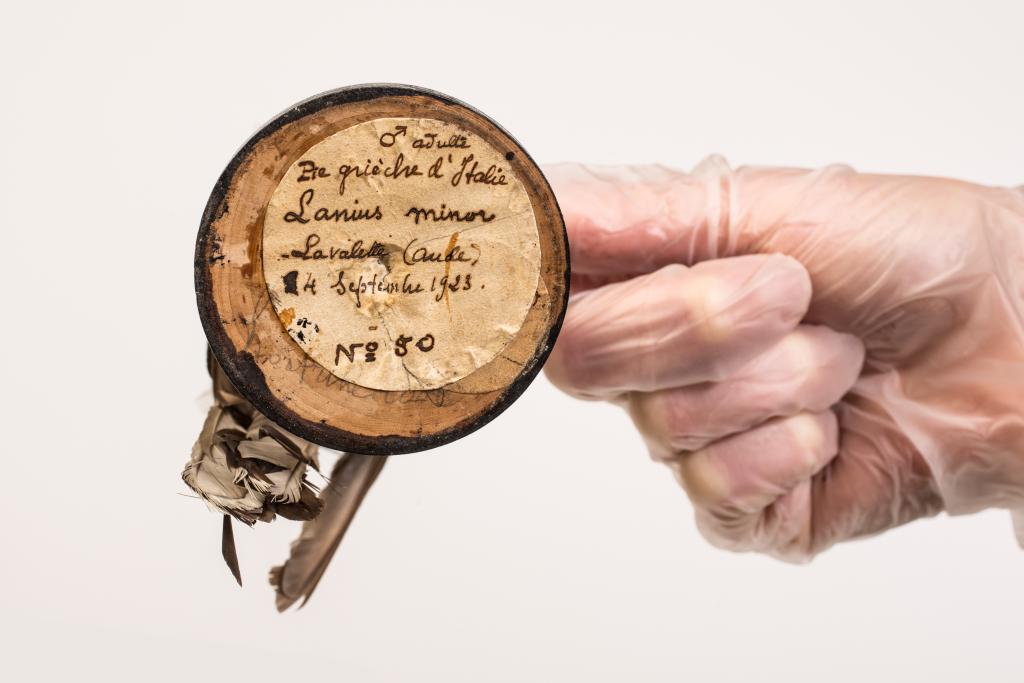 ♂ adulte
Pie grièche d'Italie
Lanius minor
Lavalette (Aude)
4 Septembre 1923.
Nº 50